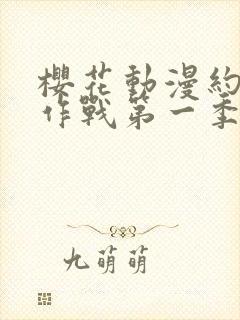 櫻花動漫約
作戰第一季
九萌萌